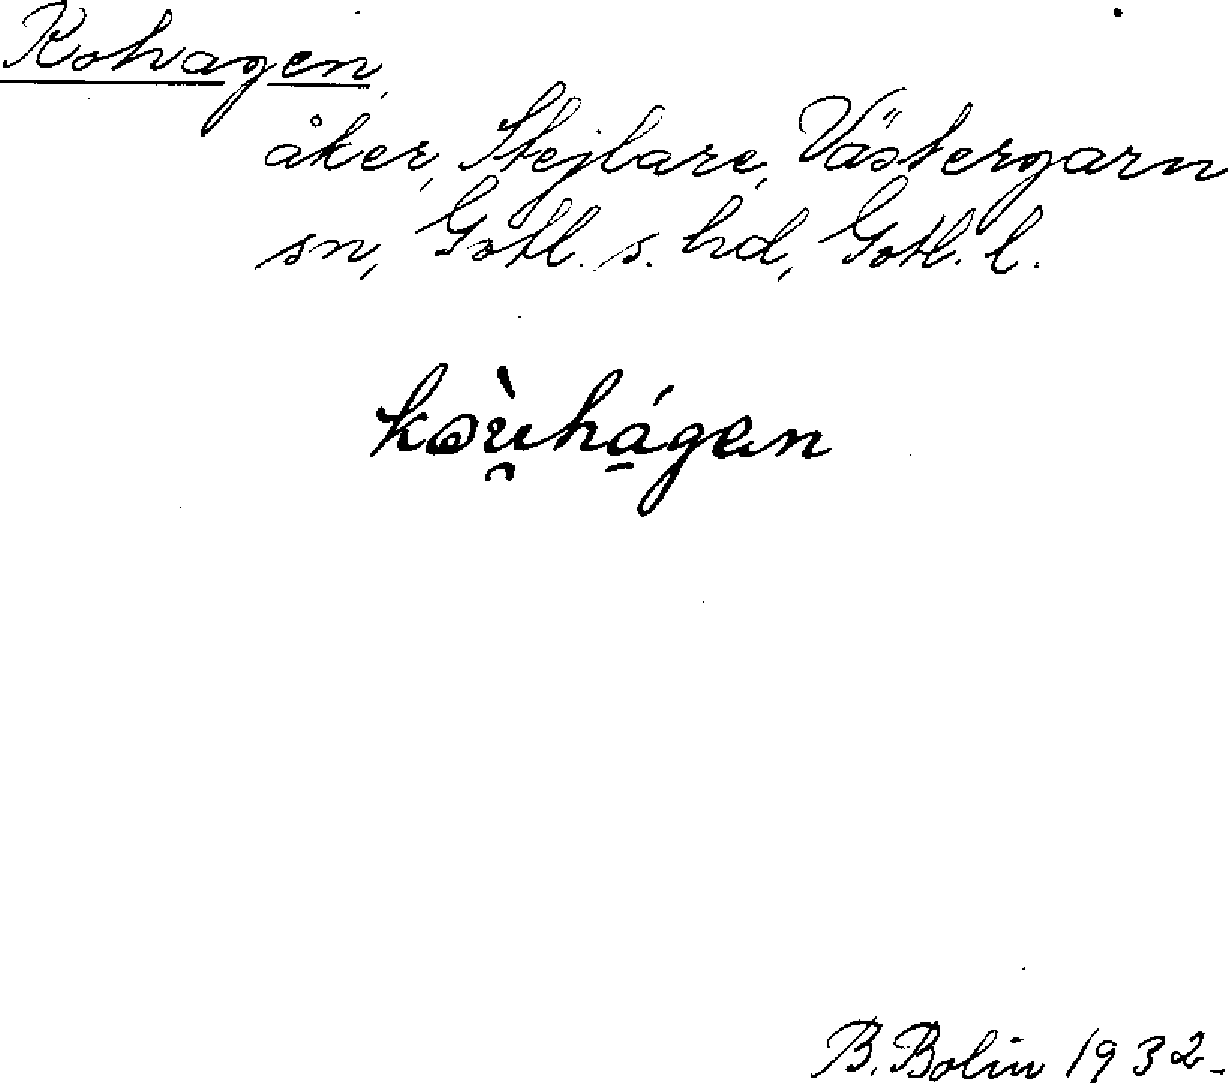 Kohagen,
åker, Stejlare, Västergarn
sn, Gotl. s. hd, Gotl. l.
kəù̯há̱gen
B. Bolin 1932.